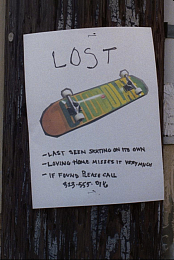 LOST
- LAST SEEN SKATING ON ITS OWN
- LOVING HOME MISSES IT VERY MUCH
- IF FOUND PLEASE CALL
323-555-